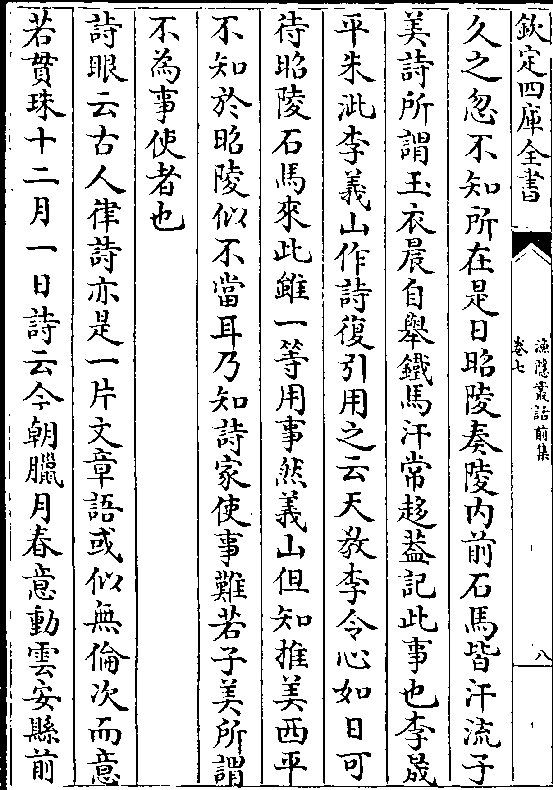 欽定四庫全書
漁隱叢話前集
卷七
八
久之忽不知所在是日昭陵奏陵内前石馬皆汗流子
美詩所謂玉衣晨自舉鐵馬汗常趍葢記此事也李晟
平朱泚李義山作詩復引用之云天教李令心如日可
待昭陵石馬來此雖一等用事然義山但知推美西平
不知於昭陵似不當耳乃知詩家使事難若子美所謂
不為事使者也
詩眼云古人律詩亦是一片文章語或似無倫次而意
若貫珠十二月一日詩云今朝臘月春意動雲安縣前